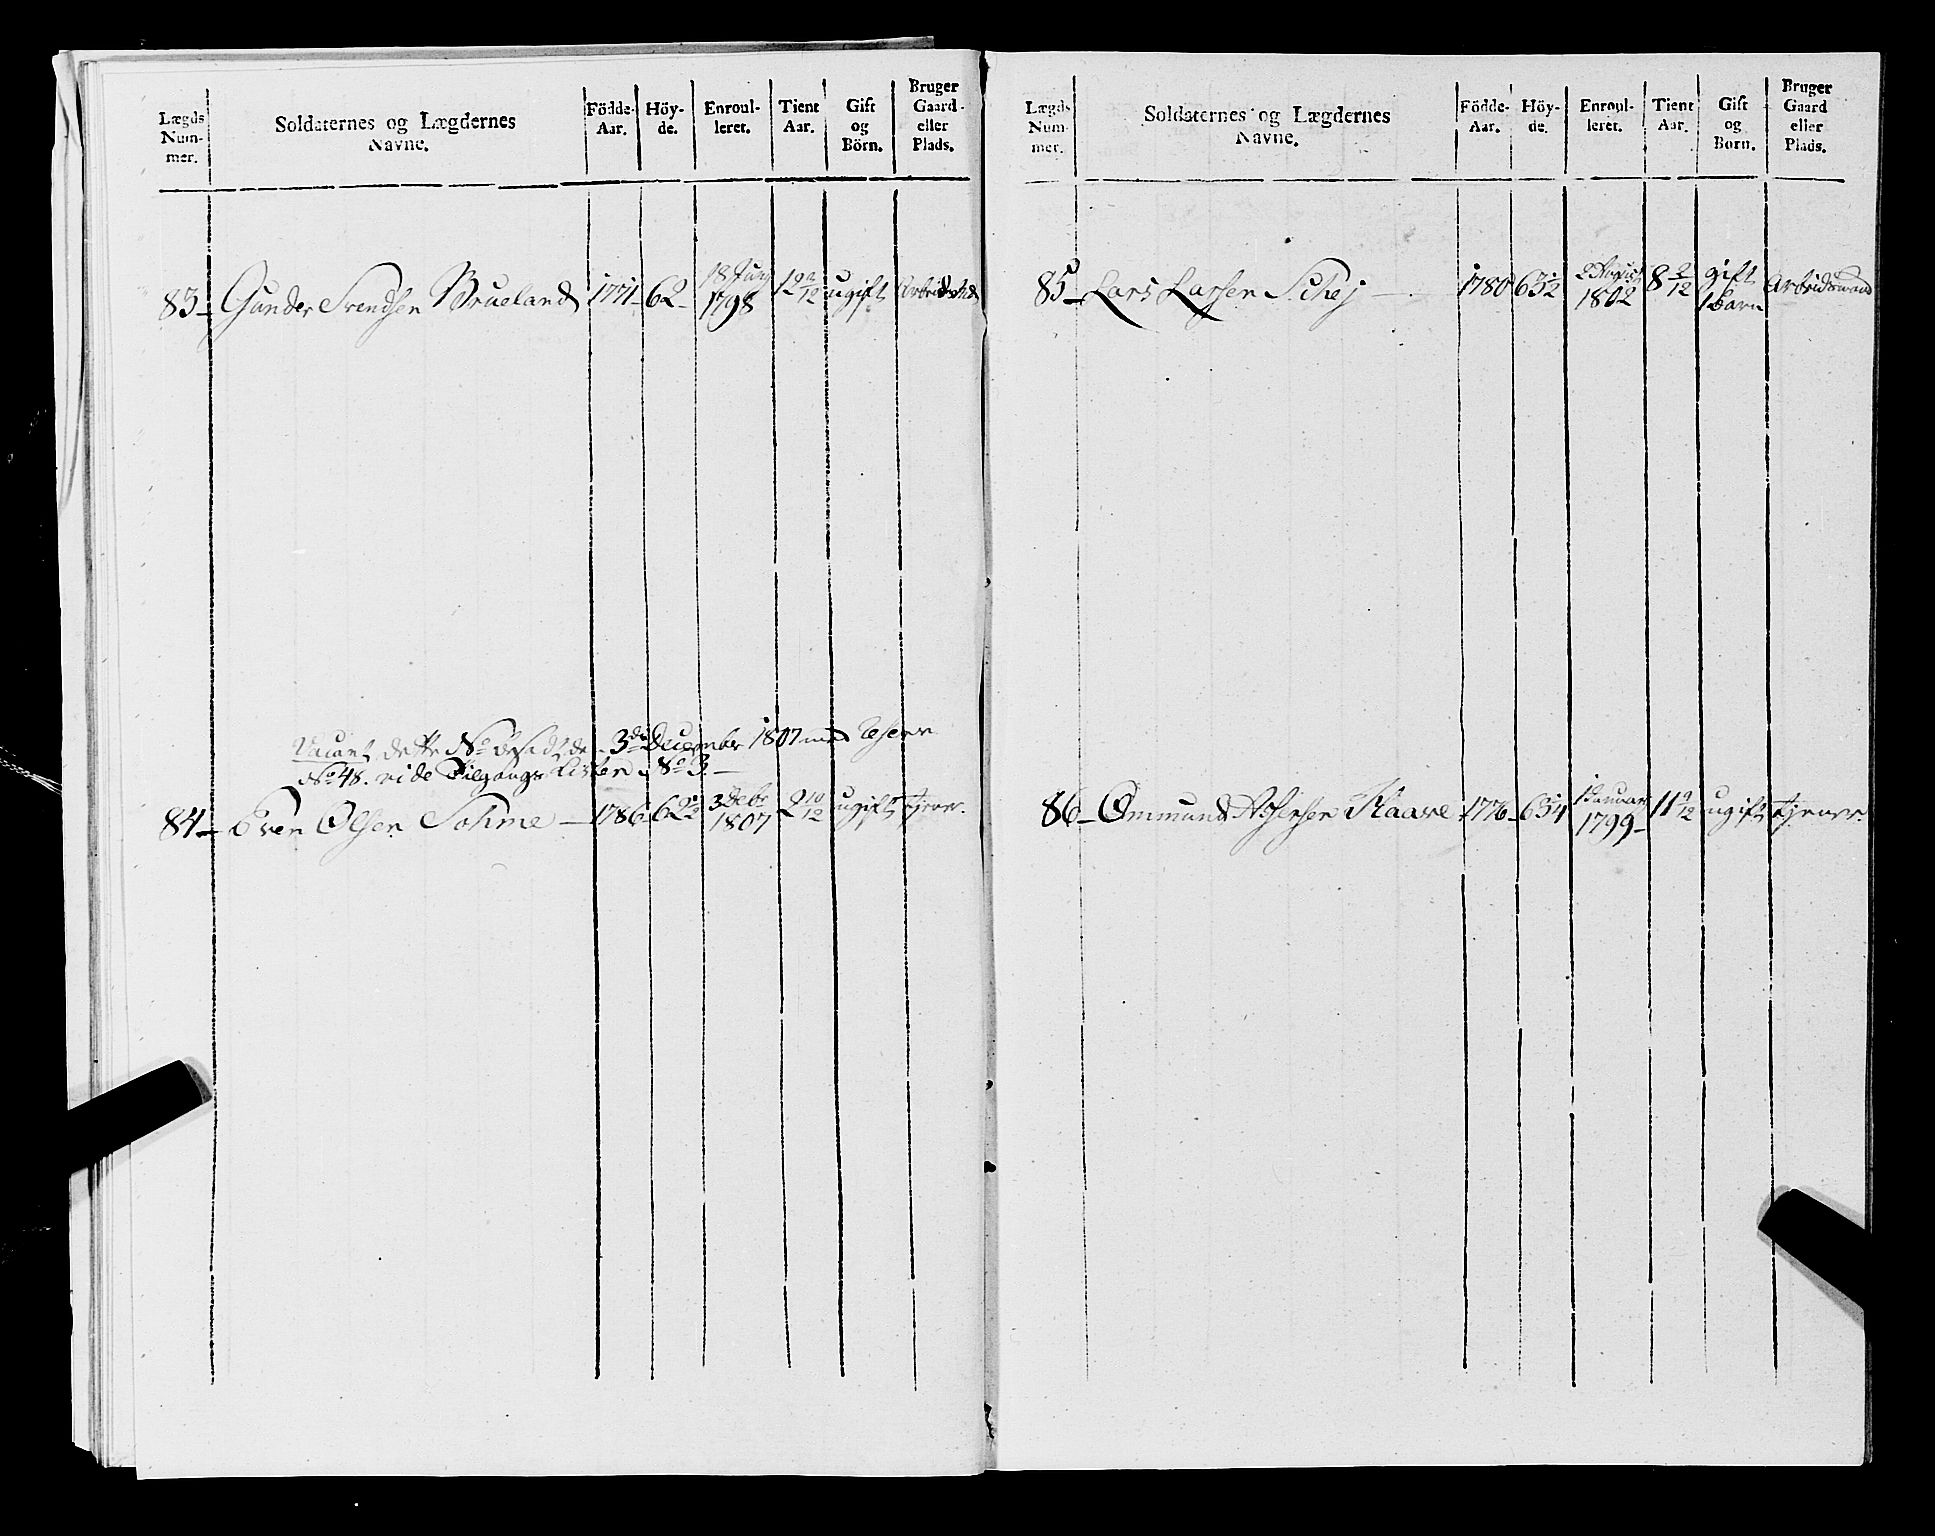 Lægds Num- mer.
Soldaternes og Lægdernes Navne.
Födde- Aar.
Höy- de.
Enroul- leret.
Tient Aar.
Gift og Börn.
Bruger Gaard eller Plads.
83 Gunder Svendsen Brueland 1771 62 18 Juny 1798 12 ugift
Vacant dette No besadt de 3die December 1807 med
No 48. vide Tilgangs Listen No 3
84 Sven Olsen Sohme 1786 62½ 3 Debr 1807 2 10/12 ugift tjener.
Lægds Num- mer.
Soldaternes og Lægdernes Navne.
Födde- Aar.
Höy- de.
Enroul- leret.
Tient Aar.
Gift og Born.
Bruger Gaard eller Plads.
85 Lars Larsen Schej 1780 63½ 2 August 1802 8 2/12 gift 1 barn Arbeidsmand
86 Ommund Haave 1776 1 Januar 1799 11 9/12 ugift tjener.